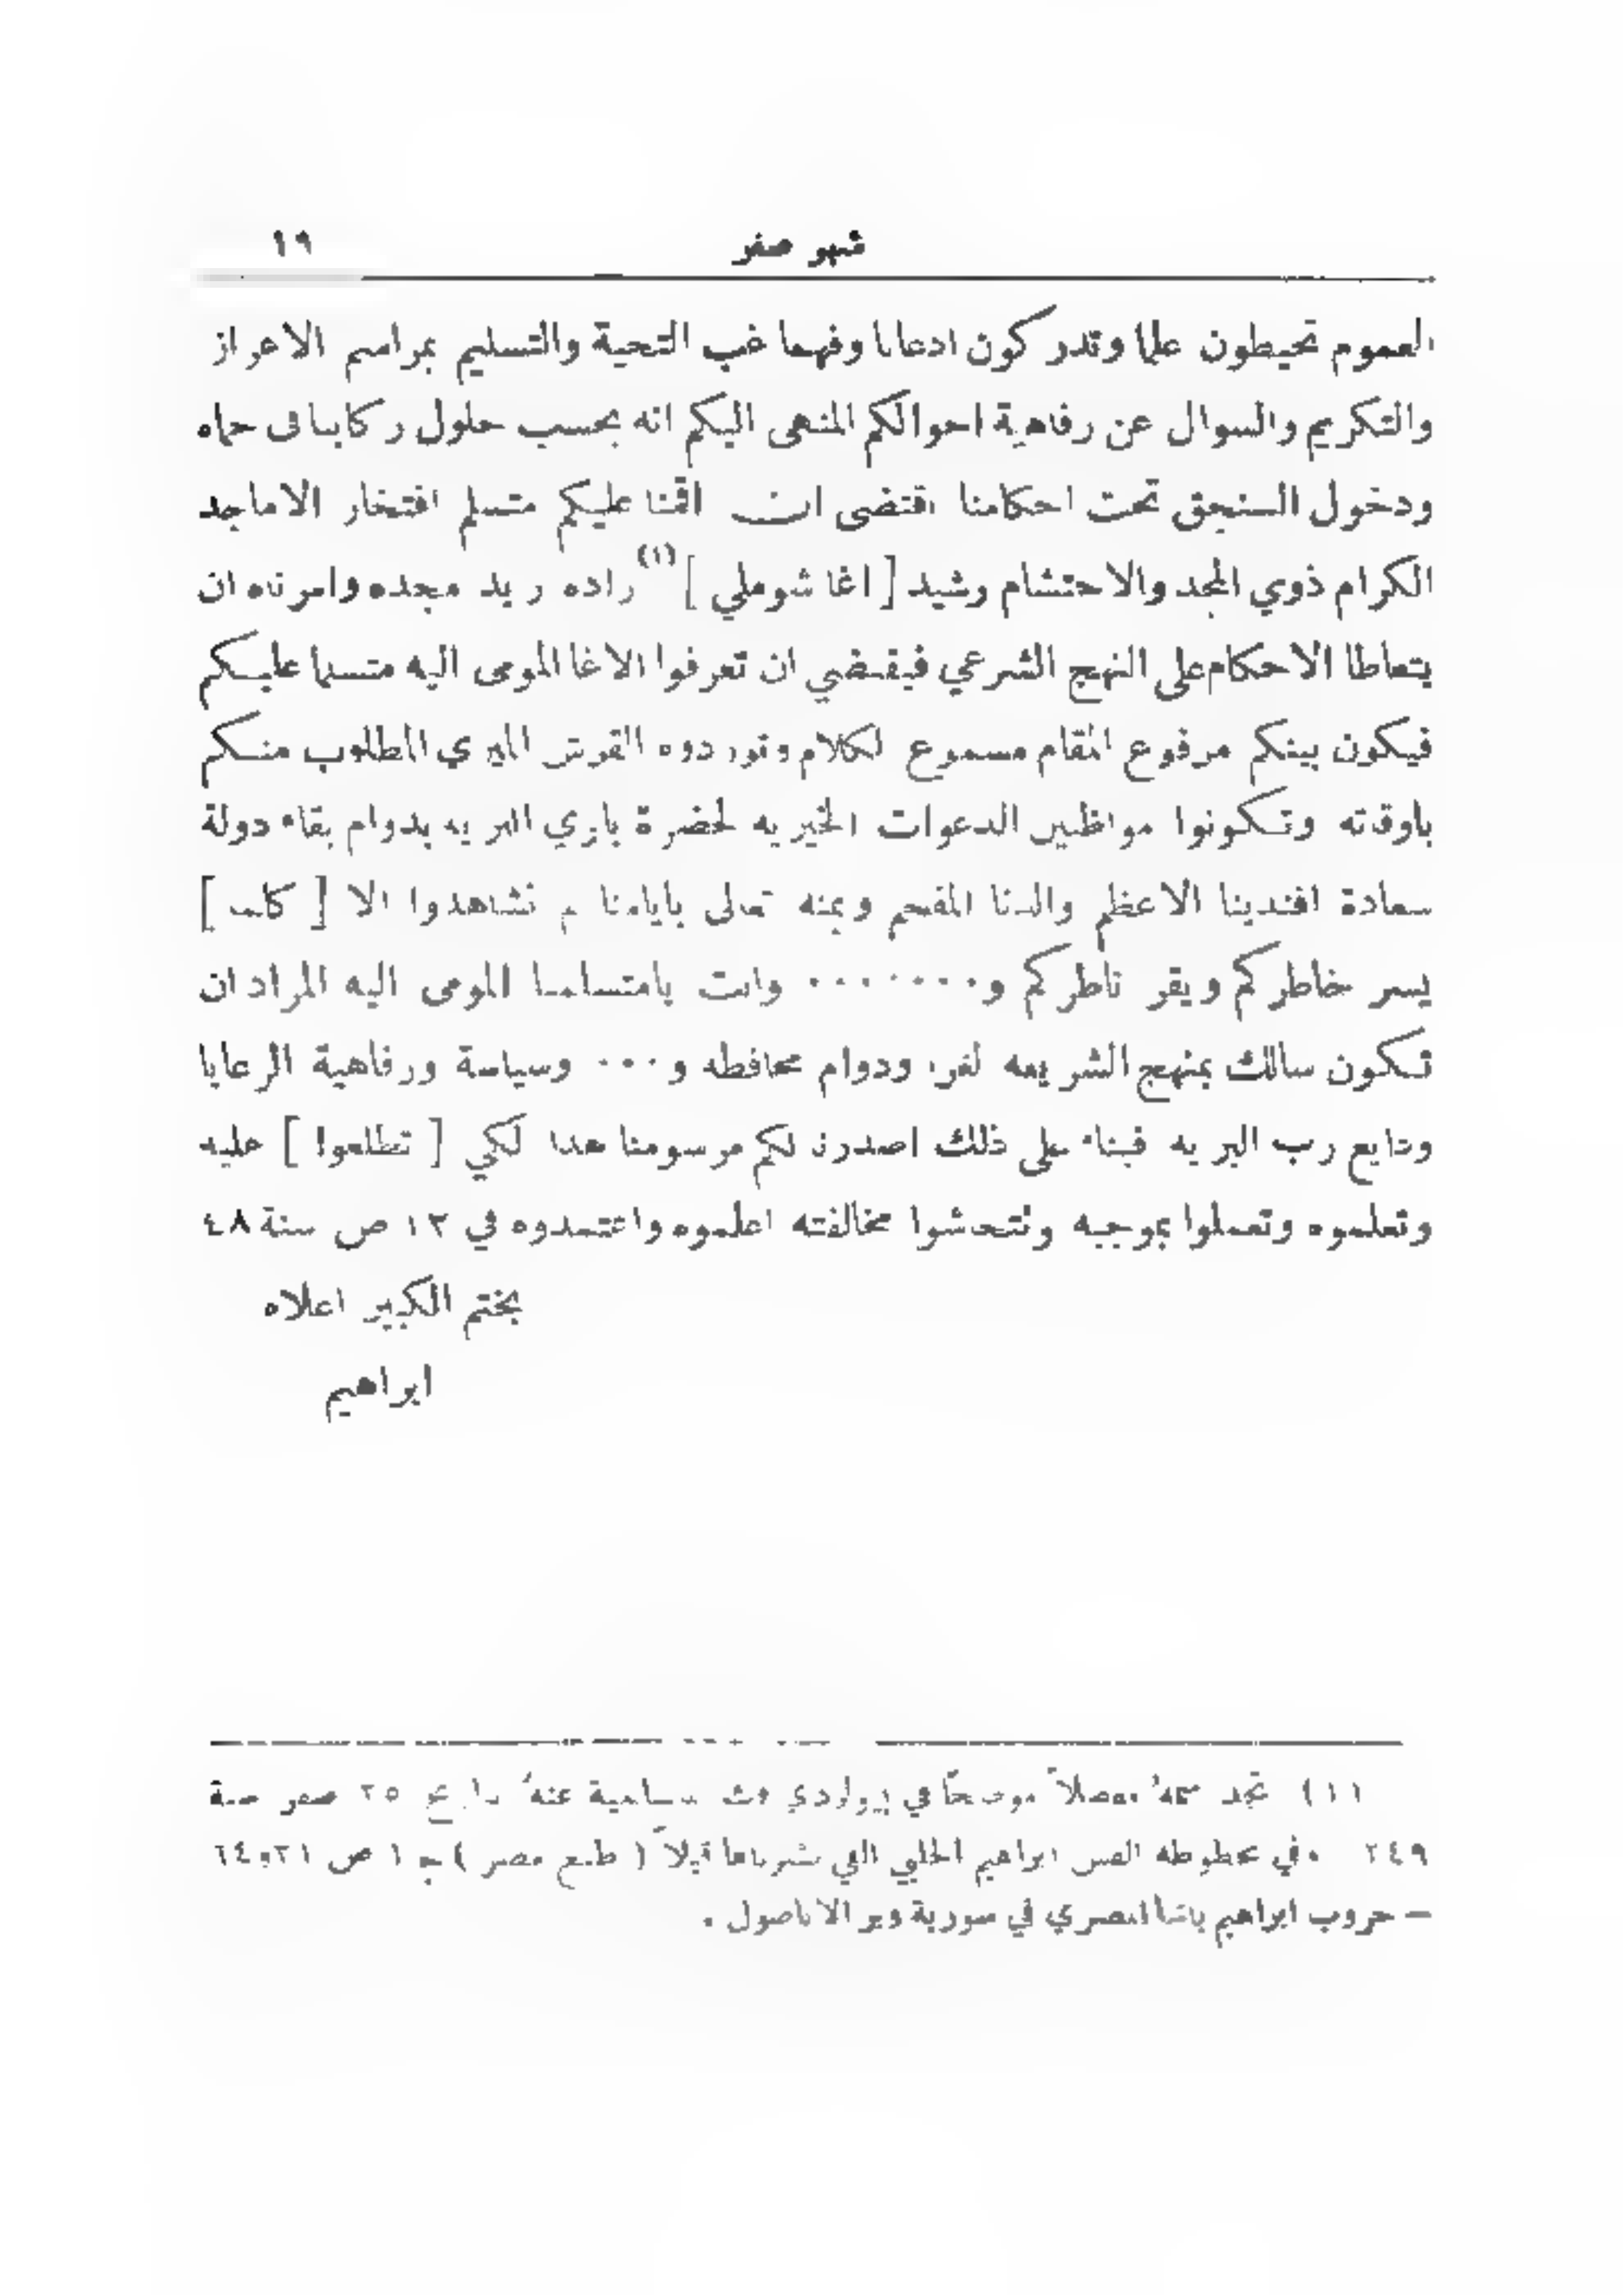 شهر صفر ١٩
العموم تحيطون علما وتدركون ادعانا وفهما غب التحية والتسليم بمراسم الاعزاز
والتكريم والسوال عن رفاهية احوالكم المنهى اليكم انه بحسب حلول ركابنا في حماه
ودخول السنجق تحت احكامنا اقتضى ان اقمنا عليكم متسلم افتخار الاماجد
الكرام ذوي المجد والاحتشام رشيد [ اغا شوملي ](١) زاده زيد مجده وامرناه ان
يتعاطا الاحكام على النهج الشرعي فيقتضي ان تعرفوا الاغا المومى اليه متسلما عليكم
فيكون بينكم مرفوع المقام مسموع الكلام وتوردوه القرش الميري المطلوب منكم
باوقاته وتكونوا مواظبين الدعوات الخيريه لحضرة باري البريه بدوام بقاء دولة
سعادة افندينا الاعظم والدنا المفخم وبمنه تعالى بايامنا م تشاهدوا الا [ كلما ]
يسر خاطركم ويقر ناظركم و ....... وانت يا متسلمنا المومى اليه المراد ان
تكون سالك بمنهج الشريعه الغرا ودوام محافظه و ... وسياسة ورفاهية الرعايا
ودايع رب البريه فبناء على ذلك اصدرنا لكم مرسومنا هدا لكي [ تطلعوا ] عليه
وتعلموه وتعملوا بموجبه وتتحاشوا مخالفته اعلموه واعتمدوه في ١٢ ص سنة ٤٨
بختم الكبير اعلاه
ابراهيم
(١) تجد اسمه مفصلاً موضحًا في بيولردي عنه بتاريخ ٢٥ صفر سنة
٢٤٩ وفي مخطوطه القس ابراهيم الحلبي التي نشرناها قبلاً ( طبع مصر ) ج ١ ص ٢١ و٦٤
– حروب ابراهيم باشا المصري في سورية وبر الاناضول .